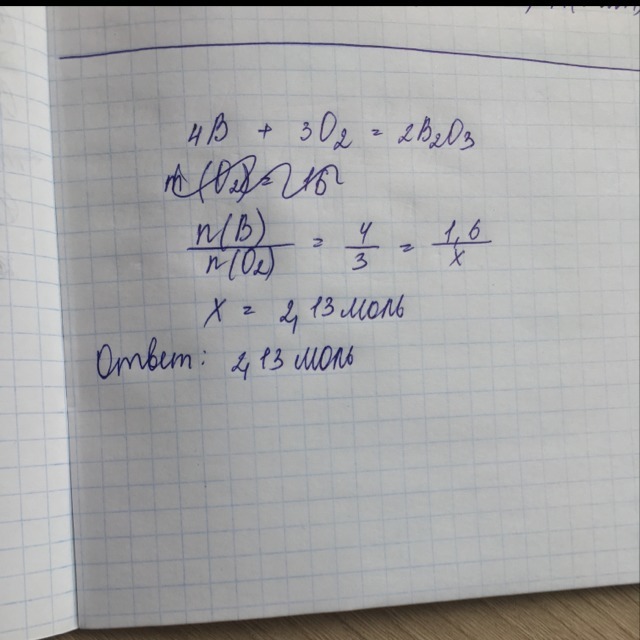 4B + 3O₂ = 2B₂O₃
n(B)/n(O₂) = 4/3 = 1,6/x
x = 2,13 моль
Ответ: 2,13 моль